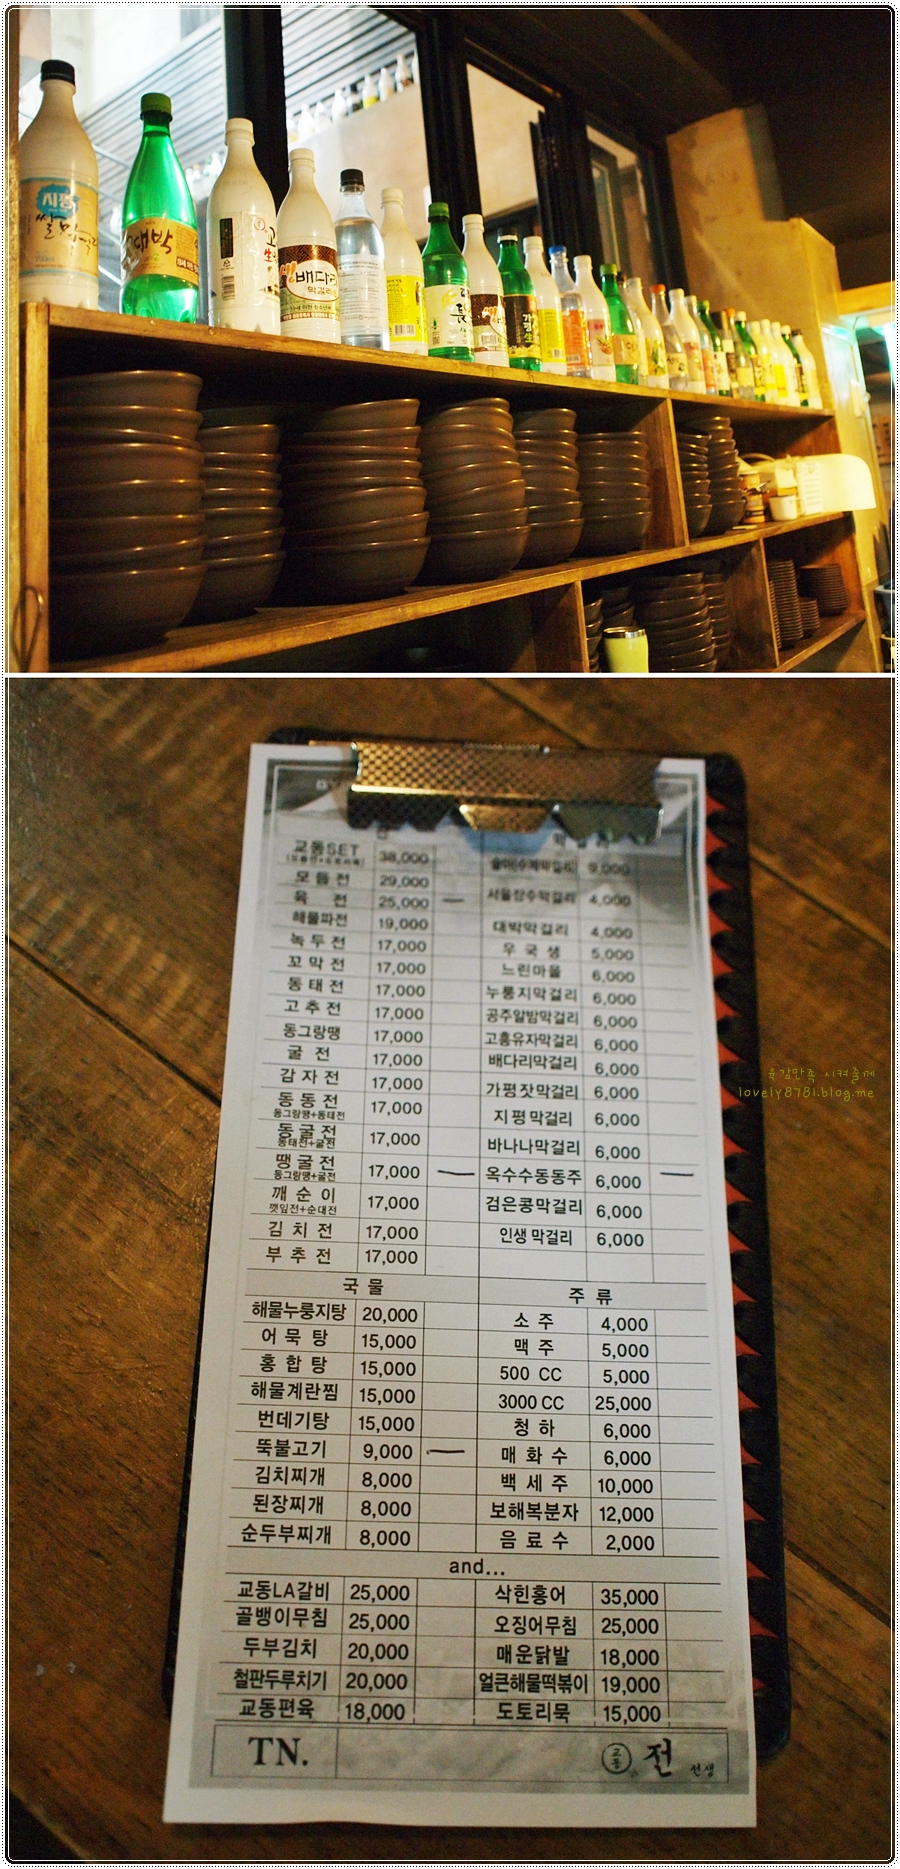 지평
쌀막걸리
대박
배다리
막걸리
전
교동SET 38,000
모듬전 29,000
육 전 25,000
해물파전 19,000
녹두전 17,000
꼬막전 17,000
동태전 17,000
고추전 17,000
동그랑땡 17,000
굴 전 17,000
감자전 17,000
동동전 17,000
동그랑땡+동태전
동굴전 17,000
동태전+굴전
땡굴전 17,000
동그랑땡+굴전
깨순이 17,000
깻잎전+순대전
김치전 17,000
부추전 17,000
9,000
서울장수막걸리 4,000
대박막걸리 4,000
우국생 5,000
느린마을 6,000
누룽지막걸리 6,000
공주알밤막걸리 6,000
고흥유자막걸리 6,000
배다리막걸리 6,000
가평잣막걸리 6,000
지평막걸리 6,000
바나나막걸리 6,000
옥수수동동주 6,000
검은콩막걸리 6,000
인생막걸리 6,000
국물
해물누룽지탕 20,000
어묵탕 15,000
홍합탕 15,000
해물계란찜 15,000
번데기탕 15,000
뚝불고기 9,000
김치찌개 8,000
된장찌개 8,000
순두부찌개 8,000
주류
소주 4,000
맥주 5,000
500 CC 5,000
3000 CC 25,000
청하 6,000
매화수 6,000
백세주 10,000
보해복분자 12,000
음료수 2,000
and...
교동LA갈비 25,000
골뱅이무침 25,000
두부김치 20,000
철판두루치기 20,000
교동편육 18,000
삭힌홍어 35,000
오징어무침 25,000
매운닭발 18,000
얼큰해물떡볶이 19,000
도토리묵 15,000
TN.
교동 전 선생
육감만족 시켜줄께
lovely8781.blog.me